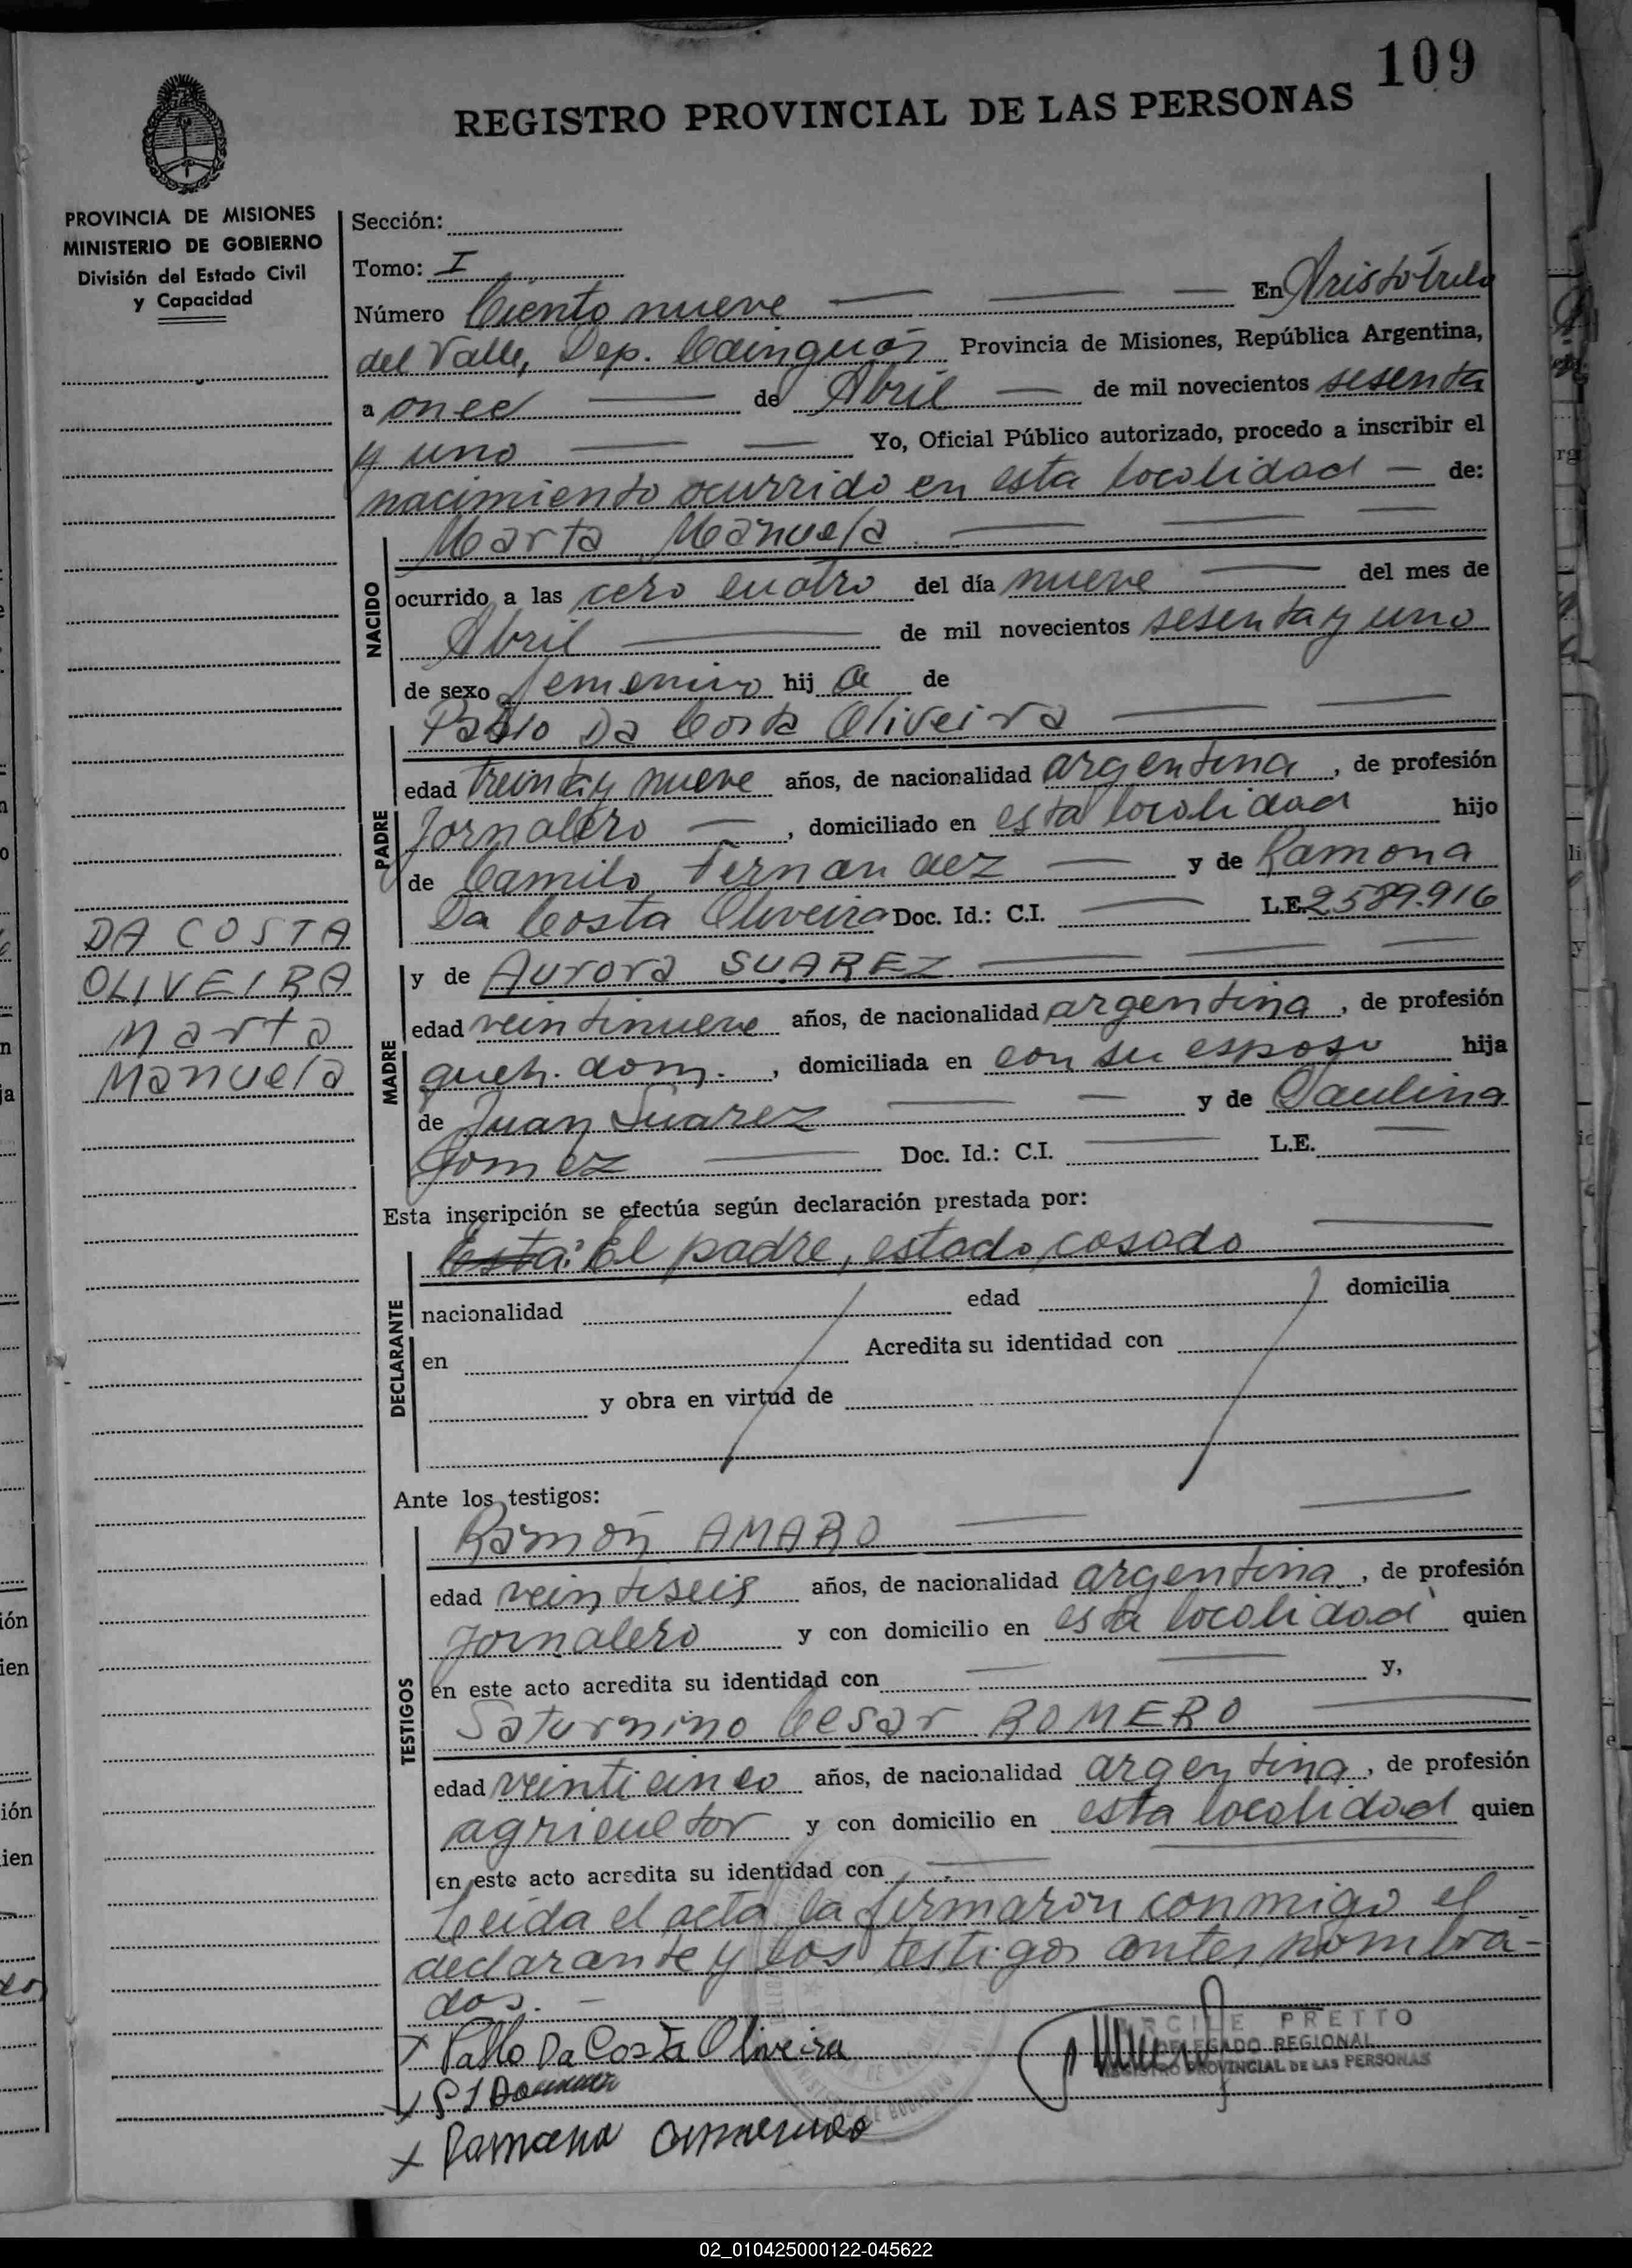 109
REGISTRO PROVINCIAL DE LAS PERSONAS
PROVINCIA DE MISIONES
MINISTERIO DE GOBIERNO
División del Estado Civil
y Capacidad
Sección:
Tomo: I
Número Ciento nueve En Aristóbulo
del Valle, Dep. Cainguás Provincia de Misiones, República Argentina,
a once de Abril de mil novecientos sesenta
y uno Yo, Oficial Público autorizado, procedo a inscribir el
nacimiento ocurrido en esta localidad de:
Marta Manuela
NACIDO
ocurrido a las cero cuatro del día nueve del mes de
Abril de mil novecientos sesenta y uno
de sexo femenino hij a de
Pablo Da Costa Oliveira
PADRE
edad treinta y nueve años, de nacionalidad argentina, de profesión
Jornalero, domiciliado en esta localidad hijo
de Camilo Fernandez y de Ramona
Da Costa Oliveira Doc. Id.: C.I. L.E. 2.589.916
DA COSTA
OLIVEIRA
Marta
Manuela
y de Aurora SUAREZ
MADRE
edad veintinueve años, de nacionalidad argentina, de profesión
queh. dom., domiciliada en con su esposo hija
de Juan Suarez y de Paulina
Gomez Doc. Id.: C.I. L.E.
Esta inscripción se efectúa según declaración prestada por:
El padre, estado casado
DECLARANTE
nacionalidad edad domicilia
en Acredita su identidad con
y obra en virtud de
Ante los testigos:
Ramón AMARO
TESTIGOS
edad veintiseis años, de nacionalidad argentina, de profesión
Jornalero y con domicilio en esta localidad quien
en este acto acredita su identidad con y,
Saturnino Cesar ROMERO
edad veinticinco años, de nacionalidad argentina, de profesión
agricultor y con domicilio en esta localidad quien
en este acto acredita su identidad con
Leida el acta la firmaron conmigo el
declarante y los testigos antes nombra-
dos.
x Pablo Da Costa Oliveira
PRETTO
DELEGADO REGIONAL
REGISTRO PROVINCIAL DE LAS PERSONAS
02_010425000122-045622